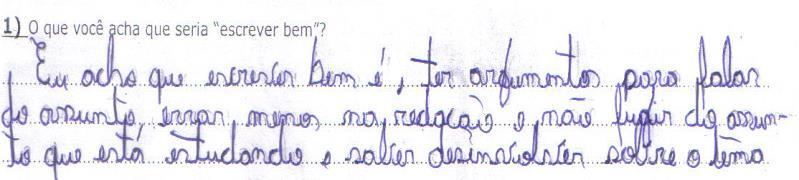 1) O que você acha que seria "escrever bem"?
Eu acho que escrever bem é, ter argumentos para falar
do assunto, errar menos na redação e não fugir do assun-
to que está estudando e saber desinvolver sobre o tema